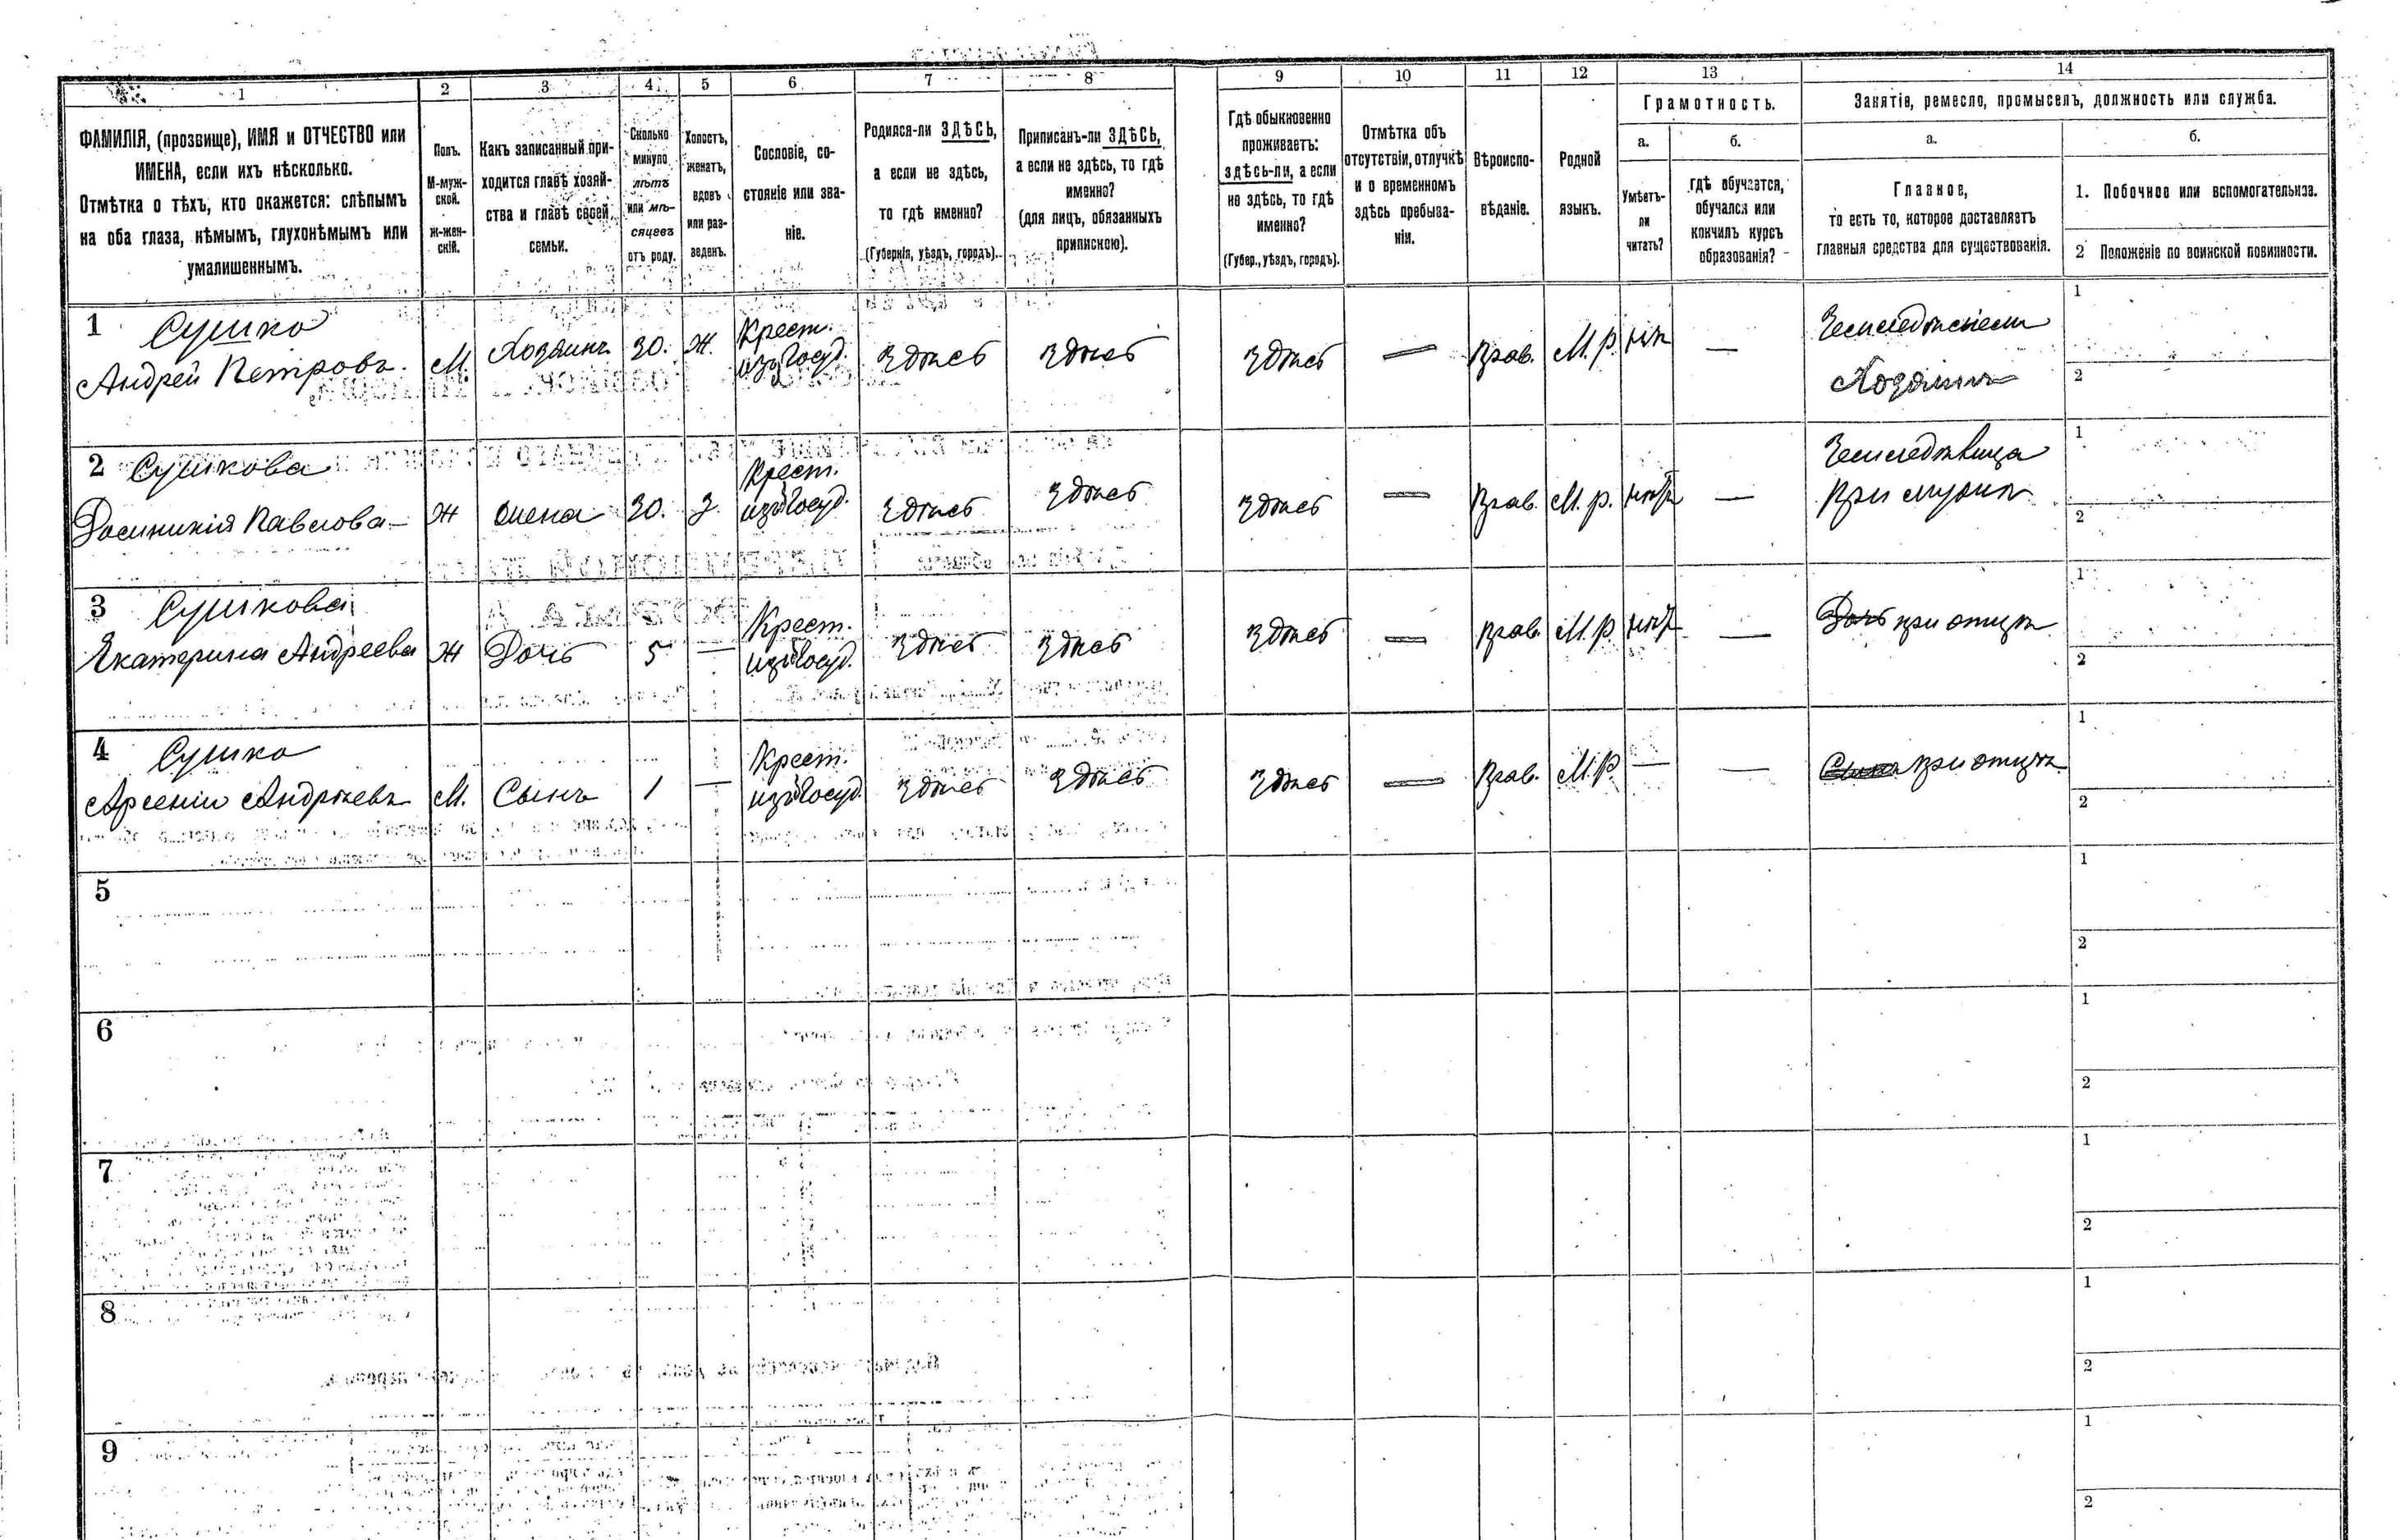 1 2 3 4 5 6 7 8 9 10 11 12 13 14
ФАМИЛІЯ, (прозвище), ИМЯ и ОТЧЕСТВО или
ИМЕНА, если ихъ нѣсколько.
Отмѣтка о тѣхъ, кто окажется: слѣпымъ
на оба глаза, нѣмымъ, глухонѣмымъ или
умалишеннымъ.
Полъ.
М-муж-
ской.
ж-жен-
скій.
Какъ записанный при-
ходится главѣ хозяй-
ства и главѣ своей
семьи.
Сколько
минуло
лѣтъ
или мѣ-
сяцевъ
отъ роду.
Холостъ,
женатъ,
вдовъ
или раз-
веденъ.
Сословіе, со-
стояніе или зва-
ніе.
Родился-ли ЗДѢСЬ,
а если не здѣсь,
то гдѣ именно?
(Губернія, уѣздъ, городъ).
Приписанъ-ли ЗДѢСЬ,
а если не здѣсь, то гдѣ
именно?
(для лицъ, обязанныхъ
припискою).
Гдѣ обыкновенно
проживаетъ:
здѣсь-ли, а если
не здѣсь, то гдѣ
именно?
(Губер., уѣздъ, городъ).
Отмѣтка объ
отсутствіи, отлучкѣ
и о временномъ
здѣсь пребыва-
ніи.
Вѣроиспо-
вѣданіе.
Родной
языкъ.
Грамотность.
а.
Умѣетъ-
ли
читать?
б.
гдѣ обучается,
обучался или
кончилъ курсъ
образованія?
Занятіе, ремесло, промыселъ, должность или служба.
а.
Главное,
то есть то, которое доставляетъ
главныя средства для существованія.
б.
1. Побочное или вспомогательное.
2 Положеніе по воинской повинности.
1 Сушко
Андрей Петровъ. М. Хозяинъ 30. Ж. Крест. изъ Госуд. Здѣсь Здѣсь Здѣсь — Прав. М. р. —
Хозяинъ
1
2
2 Сушкова
Павлова Ж жена 30. З. Крест. изъ Госуд. Здѣсь Здѣсь Здѣсь — Прав. М. р. нѣтъ —
при мужѣ
1
2
3 Сушкова
Екатерина Андреева Ж Дочь 5 — Крест. изъ Госуд. Здѣсь Здѣсь Здѣсь — Прав. М. р. нѣтъ —
Дочь при отцѣ
1
2
4 Сушко
Арсеній Андреевъ М. Сынъ 1 — Крест. изъ Госуд. Здѣсь Здѣсь Здѣсь — Прав. М. р. — —
при отцѣ
1
2
5
1
2
6
1
2
7
1
2
8
1
2
9
1
2